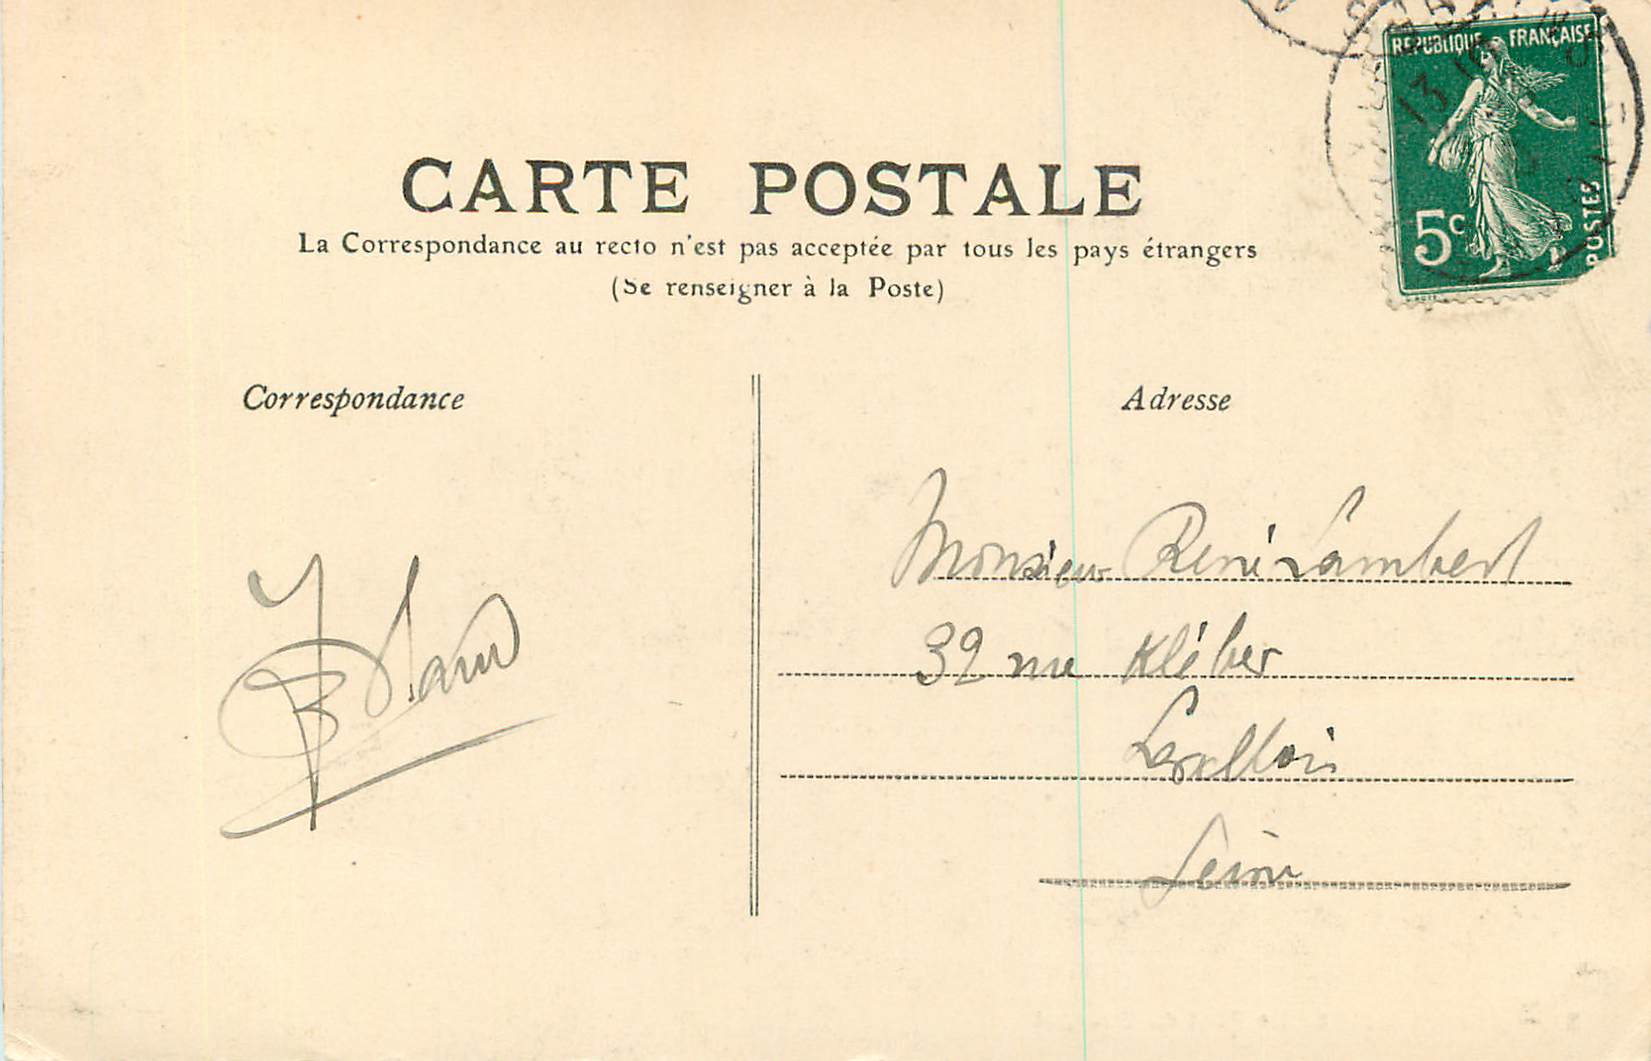 RÉPUBLIQUE FRANÇAISE
5c
POSTES
13
CARTE POSTALE
La Correspondance au recto n'est pas acceptée par tous les pays étrangers
(Se renseigner à la Poste)
Correspondance
Adresse
Monsieur René Lambert
32 rue Kléber
Levallois
Seine